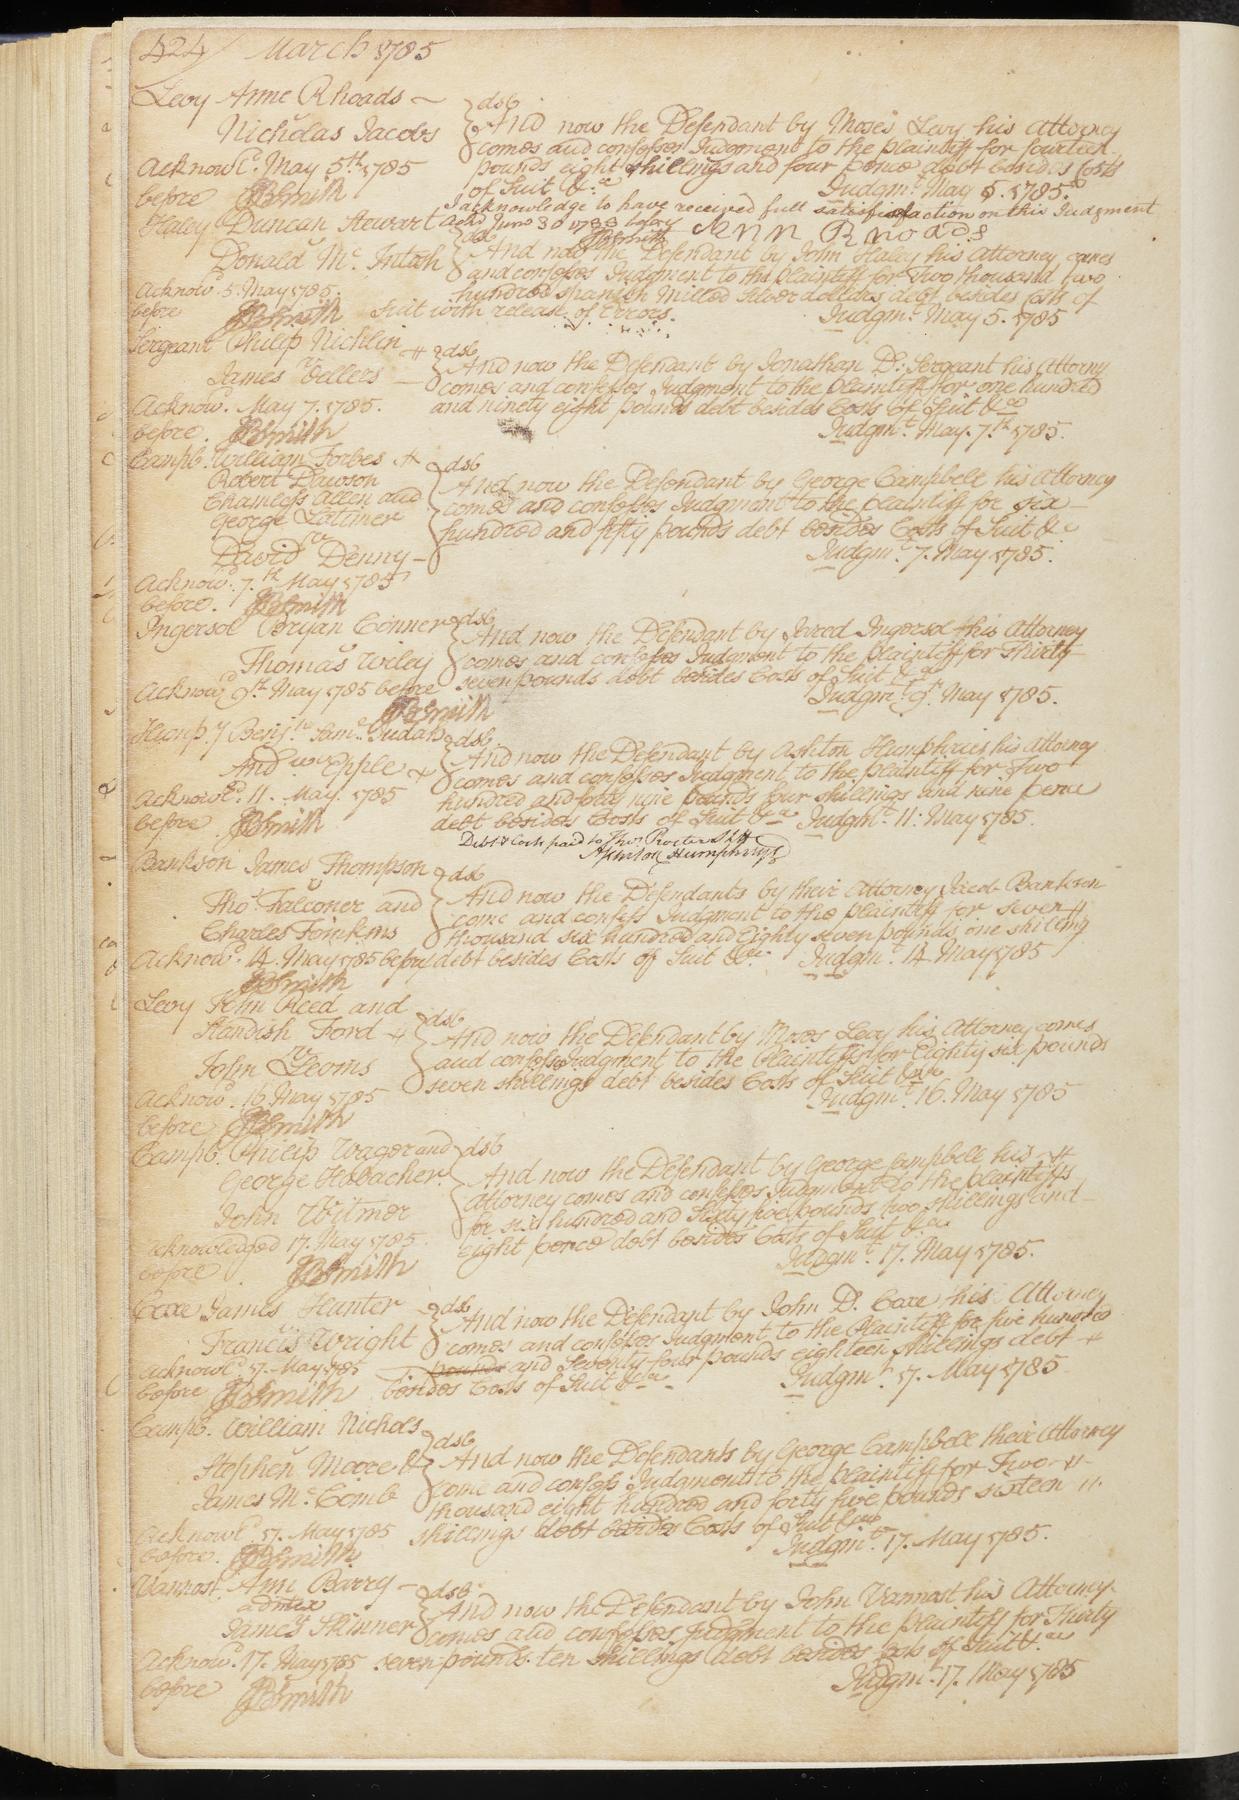 424/ March 1785
Levy Anne Rhoads
v
Nicholas Jacobs
Acknowl.d May 5th 1785
before JBSmith
dsb
And now the Defendant by Moses Levy his Attorney
comes and confesses Judgment to the plaintiff for fourteen
pounds eight shillings and four pence debt besides Costs
of Suit &ca Judgmt. May 5. 1785.
I acknowledge to have received full satisfaction on this Judgment
Ackd June 30 1788 before Ann Rhoads
JBSmith
Haley Duncan Stewart
v
Donald Mc. Intosh
Acknowd. 5. May 1785.
before JBSmith
dsb
And now the Defendant by John Haley his Attorney comes
and confesses Judgment to the plaintiff for Two thousand two
hundred spanish Milled silver dollars debt besides costs of
Suit with release of Errors. Judgmt. May 5. 1785
Sergeant Philip Nicklin
vs
James Vellers
Acknowd. May 7. 1785.
before. JBSmith
dsb
And now the Defendant by Jonathan D: Sergeant his Attorny
comes and confesses Judgment to the plaintiff for one hundred
and ninety eight pounds debt besides Costs of Suit &ca
Judgmt. May. 7.th 1785.
Campb. William Forbes
Robert Dawson
Chamless Allen and
George Latimer
vs
David Denny
Acknowd. 7.th May 1785
before. JBSmith
dsb
And now the Defendant by George Campbell his Attorney
comes and confesses Judgment to the plaintiff for six
hundred and fifty pounds debt besides Costs of Suit &c
Judgmt. 7. May 1785.
Ingersol Bryan Conner
v
Thomas Wiley
Acknowd 9th May 1785 before
JBSmith
dsb
And now the Defendant by Jared Ingersol his Attorney
comes and confesses Judgment to the plaintiff for Thirty
seven pounds debt besides Costs of Suit &ca
Judgmt. 9th. May 1785.
Hump.y Benj.n Saml. Judah
vs
And.w Epple
Acknowld. 11. May. 1785
before JBSmith
dsb
And now the Defendant by Ashton Humphries his Attorney
comes and confesses Judgment to the plaintiff for Two
hundred and forty nine pounds four shillings and nine pence
debt besides Costs of Suit &ca Judgmt. 11. May 1785.
Debt & Costs paid to Thos Procter Shff
Ashton Humphreys
Bankson James Thompson
v
Tho.s Falconer and
Charles Tomkins
Acknowd. 14. May 1785 before
JBSmith
dsb
And now the Defendants by their Attorney Jacob Bankson
come and confess Judgment to the plaintiff for seven
thousand six hundred and Eighty seven pounds one shilling
debt besides Costs of Suit &c. Judgmt. 14 May 1785
Levy John Reed and
Standish Ford
vs
John Leoms
Acknowd. 16 May 1785
before JBSmith
dsb
And now the Defendant by Moses Levy his Attorney comes
and confesses Judgment to the plaintiffs for Eighty six pounds
seven shillings debt besides Costs of Suit &ca
Judgmt. 16. May 1785
Campb. Philip Wager and
George Habacher
v
John Witmer
Acknowledged 17. May 1785.
before. JBSmith
dsb
And now the Defendant by George Campbell his
Attorney comes and confesses Judgment to the plaintiffs
for six hundred and Sixty five pounds two shillings and
eight pence debt besides Costs of Suit &ca
Judgmt. 17. May 1785.
Coxe James Hunter
v
Francis Wright
Acknowld. 17. May 1785
before JBSmith
dsb
And now the Defendant by John D. Coxe his Attorney
comes and confesses Judgment to the plaintiff for five hundred
pounds and Seventy four pounds eighteen shillings debt
besides Costs of Suit &ca Judgmt. 17. May 1785
Campb. William Nichols
v
Stephen Moore &
James Mc Comb
Acknowld. 17. May 1785
before. JBSmith
dsb
And now the Defendants by George Campbell their Attorney
come and confess Judgment to the plaintiff for Two
thousand eight hundred and forty five pounds sixteen
shillings debt besides Costs of Suit &ca
Judgmt. 17. May 1785.
Vannost Ann Barry
admex
v
James Skinner
Acknowd. 17. May 1785
before JBSmith
dsb
And now the Defendant by John Vannost his Attorney
comes and confesses Judgment to the plaintiff for Thirty
seven pounds ten shillings debt besides Costs of Suit &ca
Judgmt. 17. May 1785